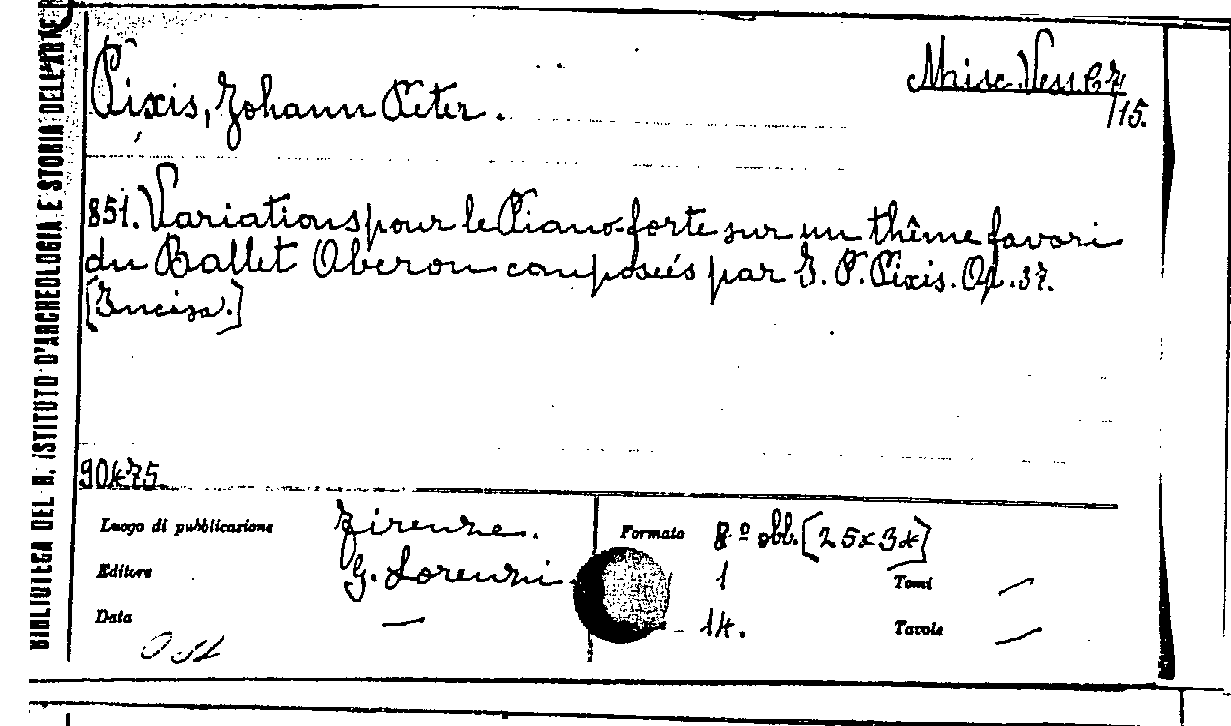 BIBLIOTECA DEL R. ISTITUTO D'ARCHEOLOGIA E STORIA DELL'ARTE
Misc. Vess. 67
/15.
Pixis, Johann Peter.
851. Variations pour le Piano-forte sur un thême favori
du Ballet Oberon composéés par J. P. Pixis. Op. 37.
[Incisa.]
90475
Luogo di pubblicazione Firenze. Formato 8º obl. [25x34]
Editore G. Lorenzi 1 Tomi —
Data — 14. Tavole —